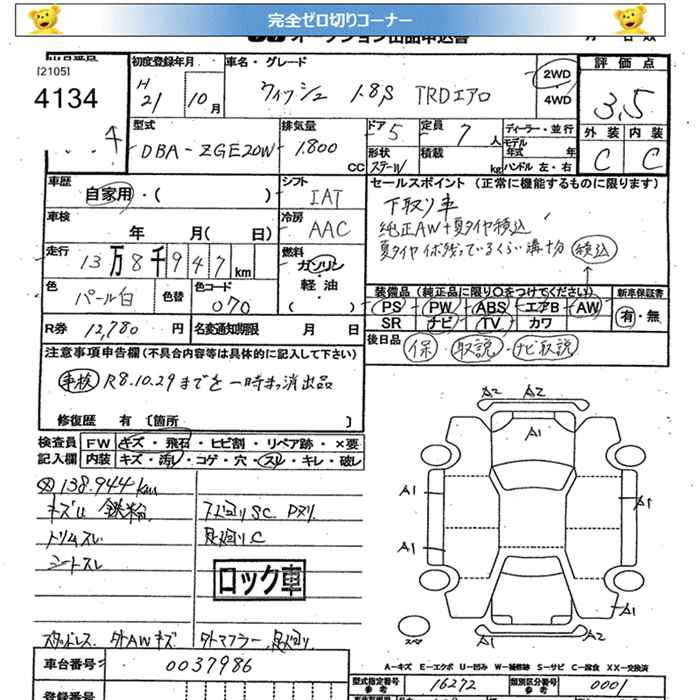 完全ゼロ切りコーナー
オークション出品申込書
[2105]
4134
初度登録年月
H
21 10月
車名・グレード
ウィッシュ 1.8S TRDエアロ
2WD
4WD
評価点
3,5
外装 内装
C C
型式
DBA-ZGE20W
排気量
1,800
CC
ドア 5
形状
定員 7
人
積載
kg
ディーラー・並行
モデル
年式 年
ハンドル 左・右
車歴
自家用・( )
シフト
IAT
セールスポイント (正常に機能するものに限ります)
下取り車
純正AW+夏タイヤ積込
夏タイヤ イボ残っているくらい溝十分 積込
車検
年 月( 日)
冷房
AAC
走行
13万8千947km
燃料
ガソリン
軽・油
( )
色
パール白
色替
色コード
070
装備品 (純正品に限り○をつけてください)
PS・PW・ABS・エアB・AW
SR ナビ TV カワ
新車保証書
有・無
R券 12,780 円
名変通知期限 月 日
後日品
保・取説・ナビ取説
注意事項申告欄(不具合内容等は具体的に記入して下さい)
車検 R8.10.29までを一時抹消出品
修復歴 有 [箇所 ]
検査員
記入欄
FW キズ・飛石・ヒビ割・リペア跡・×要
内装 キズ・汚レ・コゲ・穴・スレ・キレ・破レ
138.944km
キズU 鉄粉
トリムスレ
シートスレ
下廻りSC
足廻りC
ロック車
外AWキズ 外マフラー、足廻り
A2 A2
A1
A1 A1
A1
A1
A2
A-キズ E-エクボ U-凹み W-補修跡 S-サビ C-腐食 XX-交換済
車台番号
0037986
登録番号
型式指定番号
参考
16272
類別区分番号
参考
0001